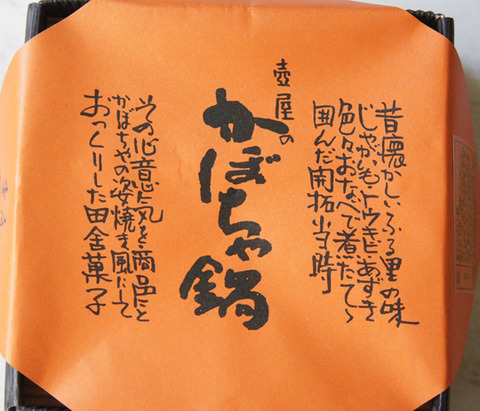 昔懐かしいふる里の味
じゃがいも、トウキビ、あずき
色々おなべで煮たてゝ
囲んだ開拓当時
壺屋の
かぼちゃ鍋
その心意気を商品にと
かぼちゃの姿焼き風にして
おつくりした田舎菓子